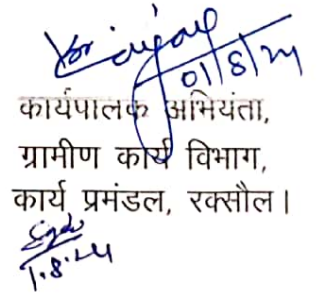 01/8/24
कार्यपालक अभियंता,
ग्रामीण कार्य विभाग,
कार्य प्रमंडल, रक्सौल।
1.8.24